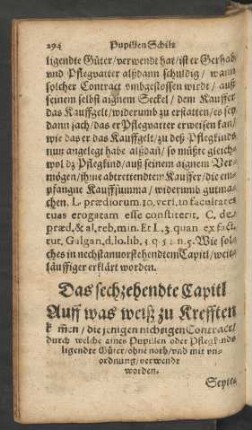 294 Pupillen Schilt
ligendte Güter / verwendt hat / ist er Gerhab
vnd Pflegvatter alßdann schuldig / wann
solcher Contract vmbgestossen wirdt / auß
seinem selbst aignem Seckel / dem Kauffer
das Kauffgelt / widerumb zu erstatten / es sey
dann sach / das er Pflegvatter erweisen kan /
wie das er das Kauffgelt / zu deß Pflegkinds
nutz angelegt habe alßdañ / so müßte gleich-
wol dz Pflegkind / auß seinem aignem Ver-
mögen / ihme abtrettendtem Kauffer / die em-
pfangne Kauffsumma / widerumb gutma-
chen. L. prædiorum. 10. veri. in facultates
tuas erogatam esse constiterit. C. de
præd. & al. reb. min. Et L. 3. quan. ex fact.
tut. Galgan. d. lo. lib. 3. c. n. 5. Wie sol-
ches in nechstanvorstehendtem Capitl / weit-
läuffiger erklärt worden.
Das sechzehendte Capitl
Auff was weiß zu Krefften
kom̃en / die jenigen nichtigen Contract /
durch welche eines Pupillen oder Pflegkinds
ligendte Güter / ohne noth / vnd mit vn-
ordnung / verwendt
worden.